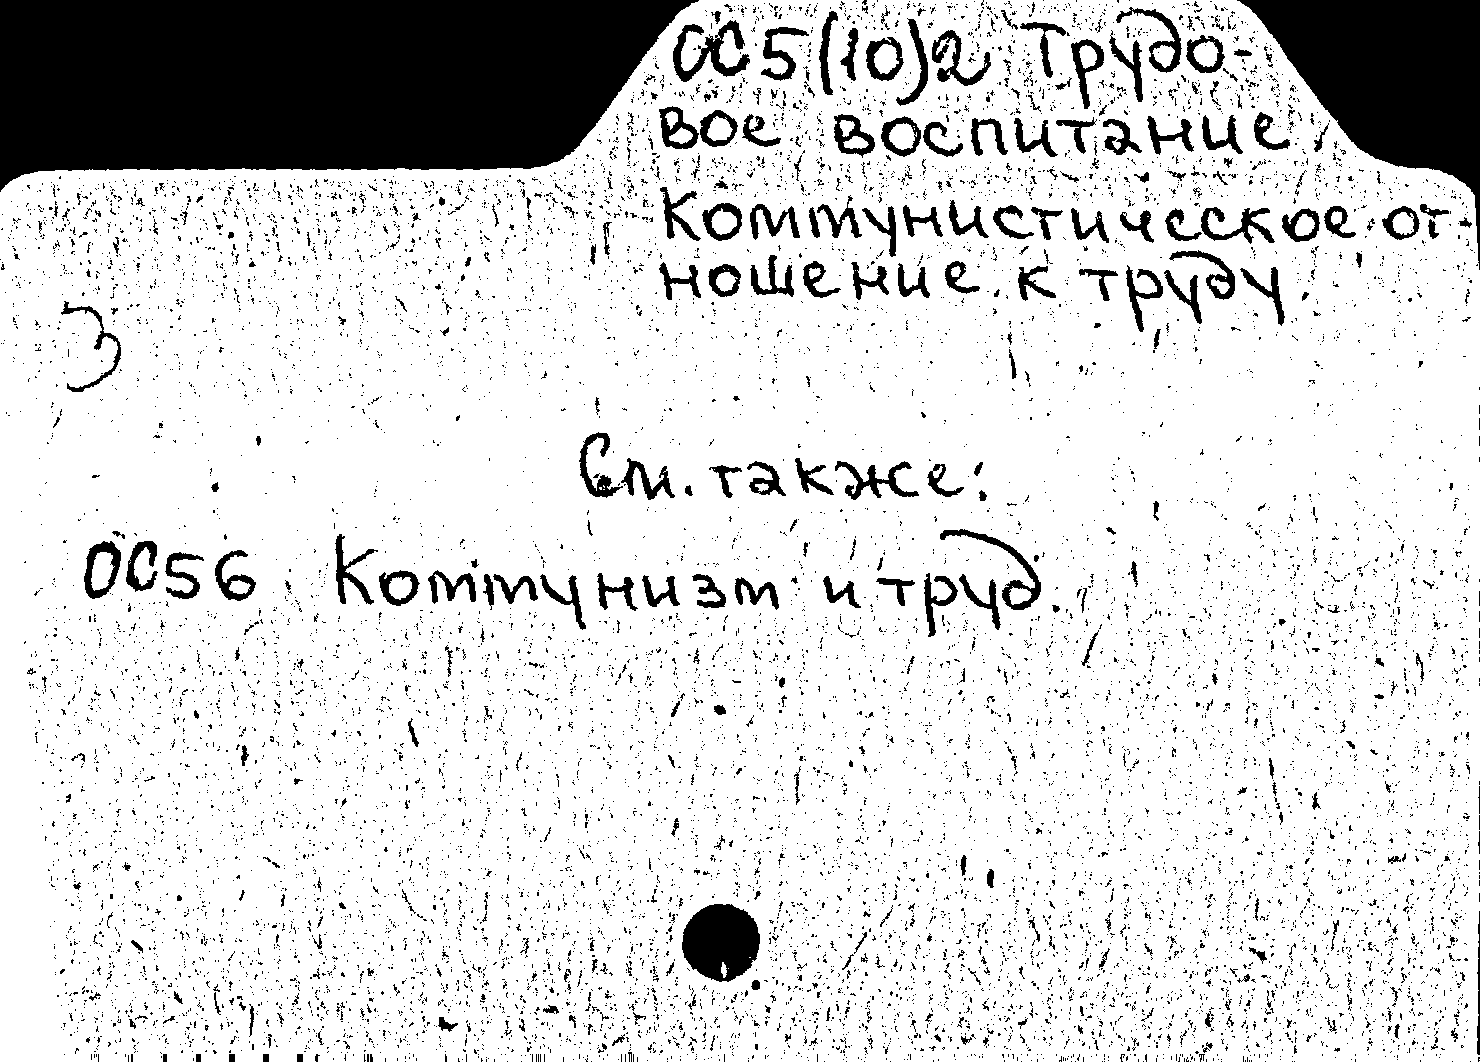 ОС5(10)2 Трудо-
вое воспитание.
Коммунистическое от-
ношение к труду.
3
См. также:
ОС56 Коммунизм и труд.